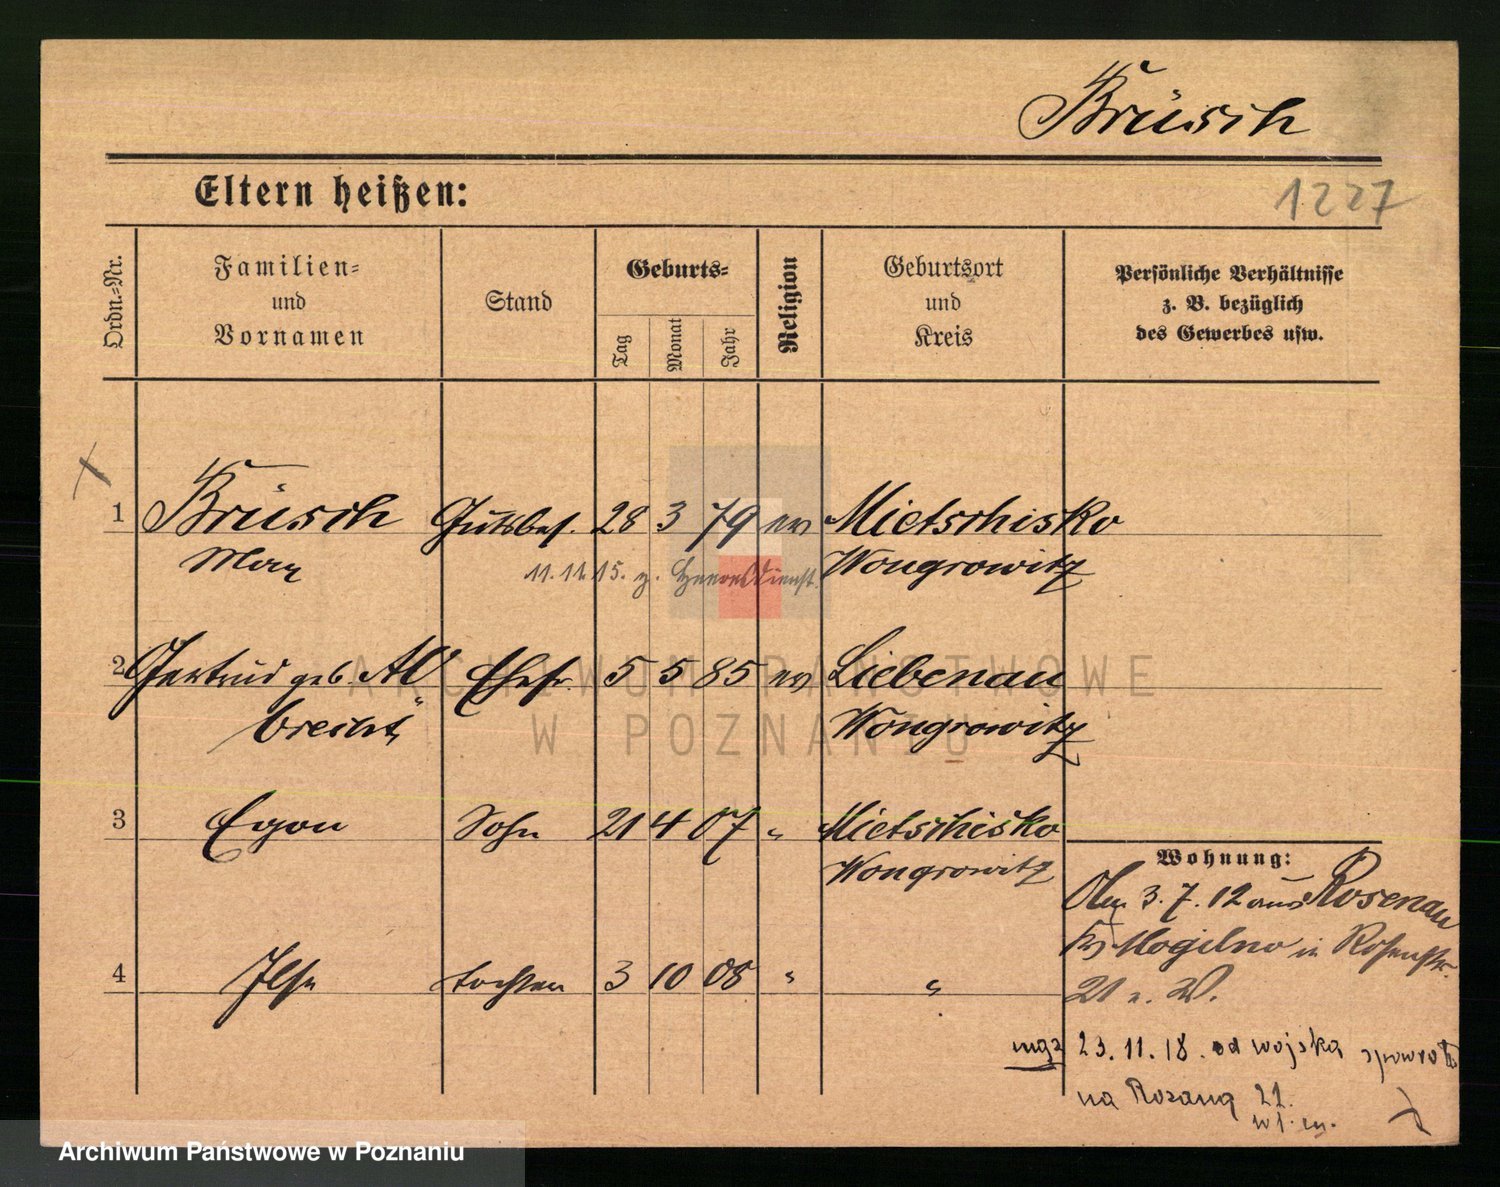 Brüsch
Eltern heißen:
1227
Ordn.-Nr.
Familien-
und
Vornamen
Stand
Geburts-
Tag
Monat
Jahr
Religion
Geburtsort
und
Kreis
Persönliche Verhältnisse
z. B. bezüglich
des Gewerbes usw.
1 Brüsch Gutsbes. 28 3 79 ev Mietschisko
Max Wongrowitz
11.11.15. z. Heeresdienst.
2 Gertrud geb. Al Ehefr. 5 5 85 ev Liebenau
brecht Wongrowitz
3 Egon Sohn 21 4 07 " Mietschisko
Wongrowitz
4 Ilse tochter 3 10 08 " "
Wohnung:
3.7.12 aus Rosenau
Kr Mogilno in Rosenstr.
21 e. W.
mgz 23.11.18. od wojska spowrot
na Rozaną 21.
wł. m.
ARCHIWUM PAŃSTWOWE
W POZNANIU
Archiwum Państwowe w Poznaniu